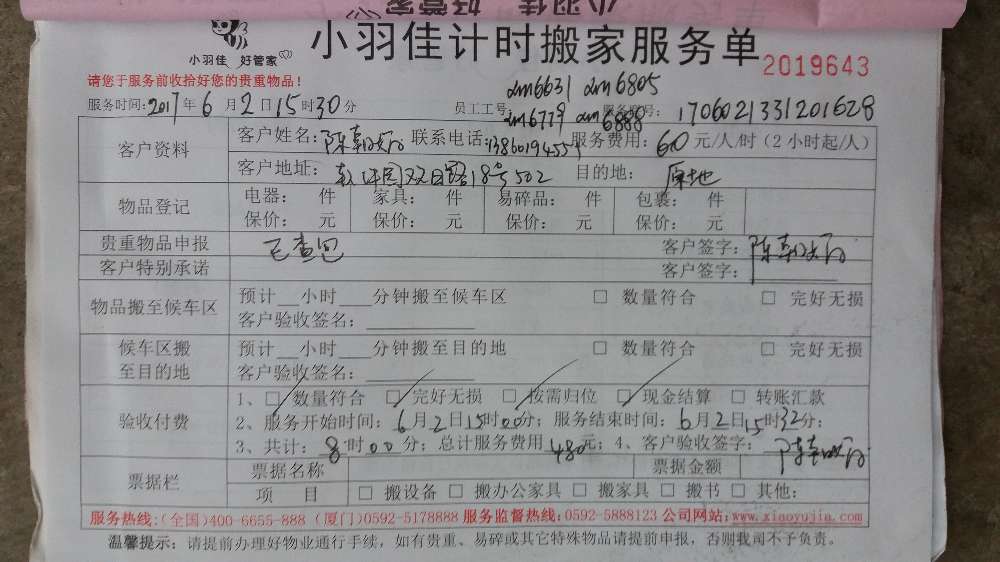 小羽佳 好管家
小羽佳计时搬家服务单
2019643
请您于服务前收拾好您的贵重物品！
xm6631 xm6805
服务时间：2017年6月2日15时30分 员工工号：xm6779 xm6888 服务单号：1706021331201628
客户资料
客户姓名：陈 联系电话：13860194551 服务费用：60元/人/时（2小时起/人）
客户地址：软件园双日路18号502 目的地：原地
物品登记
电器： 件 家具： 件 易碎品： 件 包裹： 件
保价： 元 保价： 元 保价： 元 保价： 元
贵重物品申报 已查包 客户签字：陈
客户特别承诺 客户签字：
物品搬至候车区
预计__小时___分钟搬至候车区 □ 数量符合 □ 完好无损
客户验收签名：
候车区搬至目的地
预计__小时___分钟搬至目的地 □ 数量符合 □ 完好无损
客户验收签名：
验收付费
1、□ 数量符合 □ 完好无损 □ 按需归位 □ 现金结算 □ 转账汇款
2、服务开始时间：6月2日15时00分；服务结束时间：6月2日15时32分；
3、共计：8时00分；总计服务费用480元；4、客户验收签字：陈
票据栏
票据名称 票据金额
项 目 □ 搬设备 □ 搬办公家具 □ 搬家具 □ 搬书 □ 其他：
服务热线：(全国)400-6655-888 (厦门)0592-5178888 服务监督热线：0592-5888123 公司网站：www.xiaoyujia.com
温馨提示：请提前办理好物业通行手续，如有贵重、易碎或其它特殊物品请提前申报，否则我司不予负责。